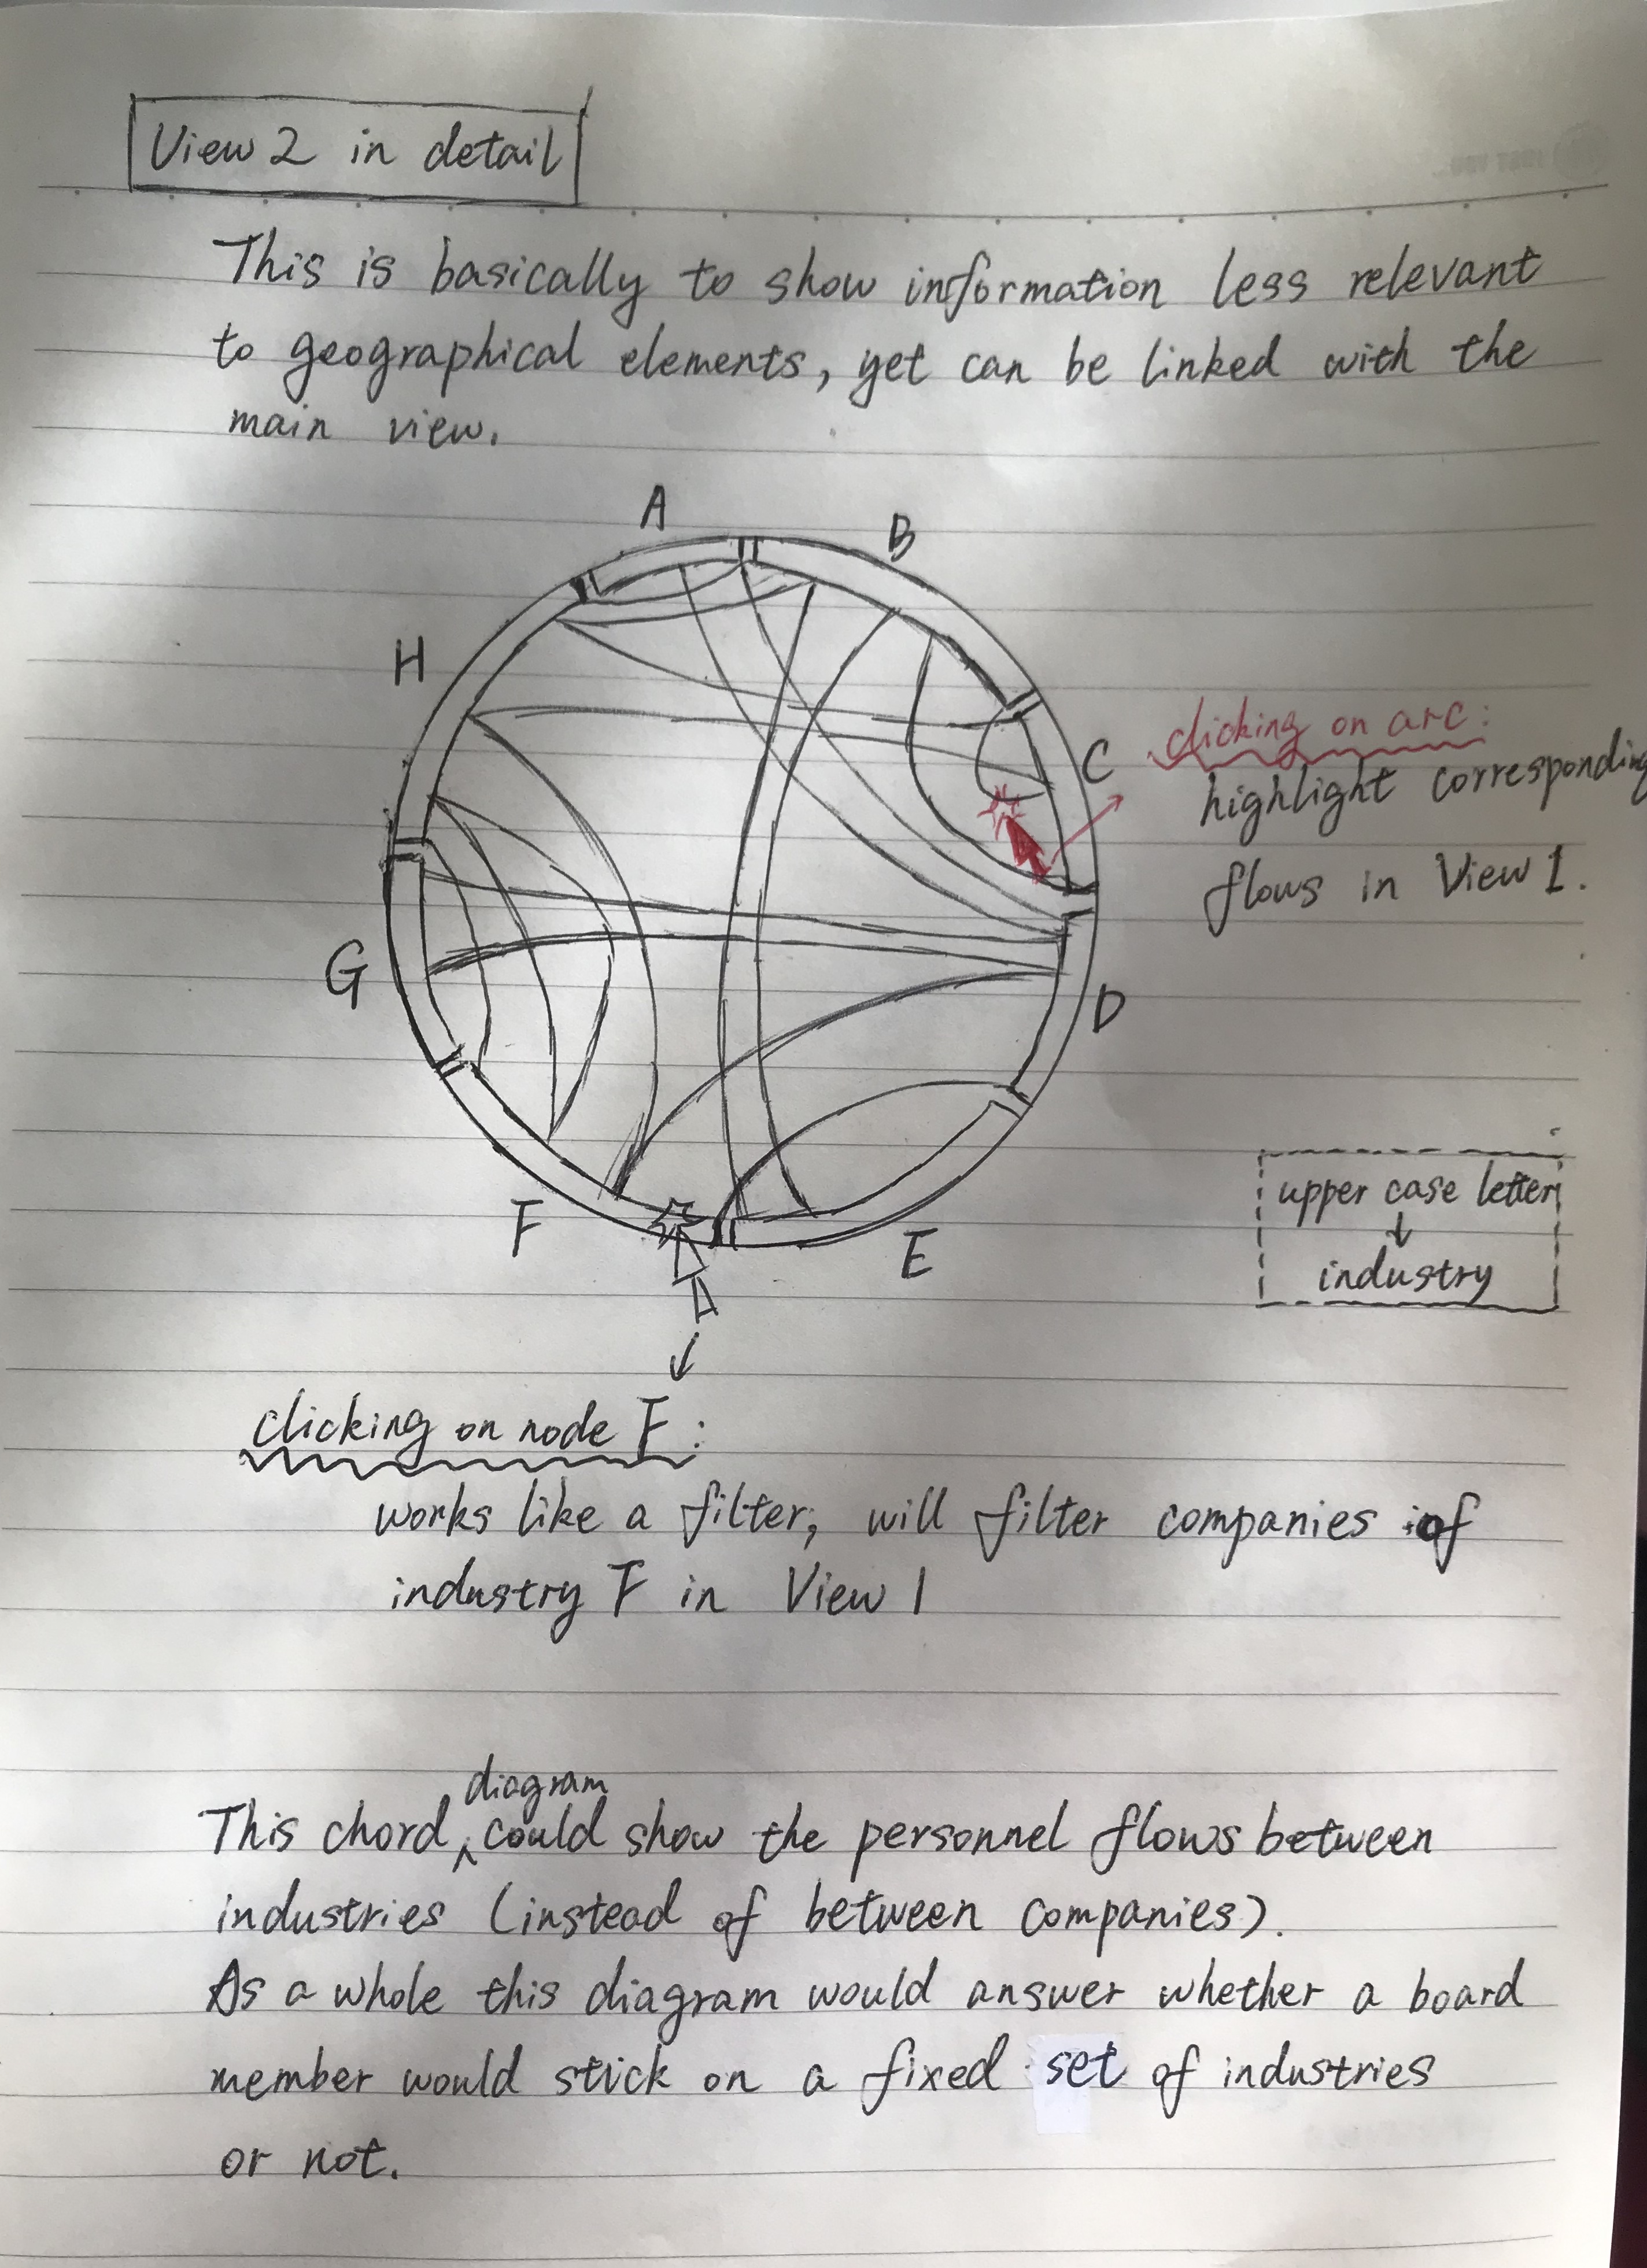 View 2 in detail
This is basically to show information less relevant
to geographical elements, yet can be linked with the
main view.
A
B
H
C
clicking on arc:
highlight corresponding
flows in View 1.
G
D
F
E
upper case letter
↓
industry
clicking on node F:
works like a filter, will filter companies of
industry F in View 1
diagram
This chord ^ could show the personnel flows between
industries (instead of between companies).
As a whole this diagram would answer whether a board
member would stick on a fixed set of industries
or not.